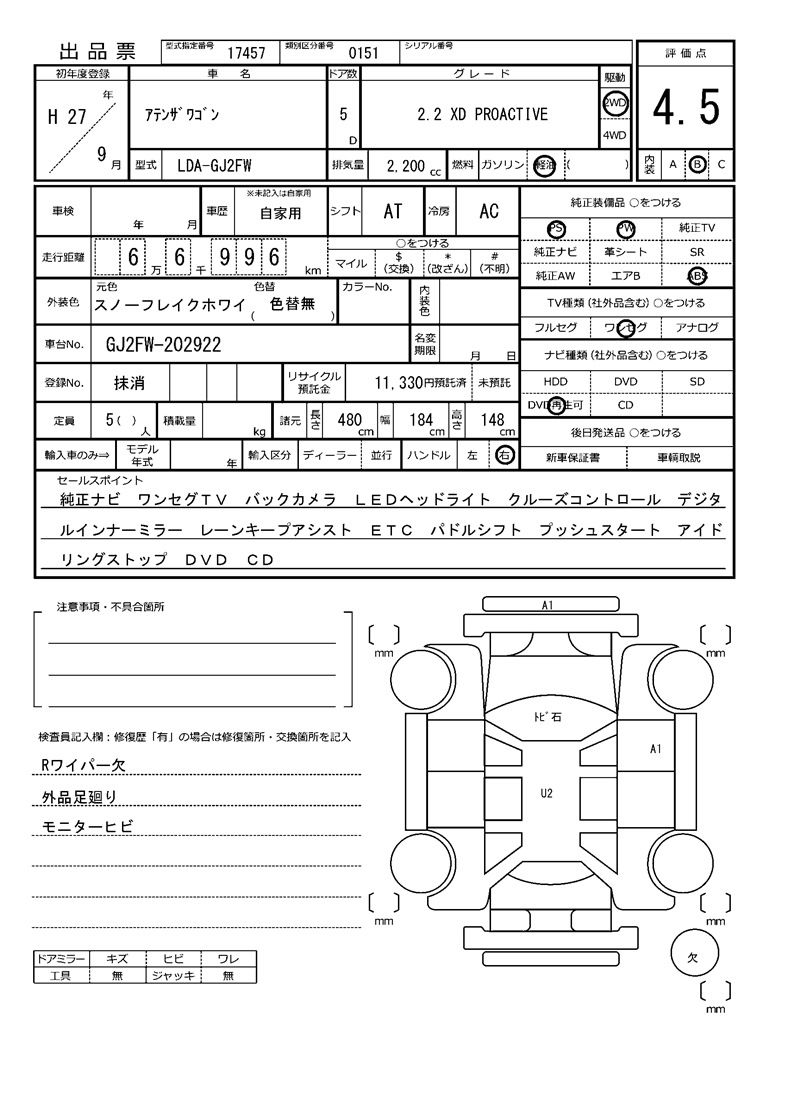 出品票 型式指定番号 17457 類別区分番号 0151 シリアル番号
評価点
初年度登録 車名 ドア数 グレード 駆動
H 27 年 9 月
アテンザワゴン 5 D 2.2 XD PROACTIVE 2WD 4WD
4.5
型式 LDA-GJ2FW 排気量 2,200 cc 燃料 ガソリン 軽油 ( )
内装 A B C
車検 年 月 車歴 ※未記入は自家用 自家用 シフト AT 冷房 AC
純正装備品 ○をつける
PS PW 純正TV
走行距離 6 万 6 千 9 9 6 km
○をつける
マイル $ (交換) * (改ざん) # (不明)
純正ナビ 革シート SR
純正AW エアB ABS
外装色 元色 スノーフレイクホワイ 色替 ( 色替無 ) カラーNo. 内装色
TV種類(社外品含む)○をつける
フルセグ ワンセグ アナログ
車台No. GJ2FW-202922 名変期限 月 日
ナビ種類(社外品含む)○をつける
HDD DVD SD
登録No. 抹消 リサイクル預託金 11,330円預託済 未預託
DVD再生可 CD
定員 5 ( ) 人 積載量 kg 諸元 長さ 480 cm 幅 184 cm 高さ 148 cm
後日発送品 ○をつける
輸入車のみ⇒ モデル年式 年 輸入区分 ディーラー 並行 ハンドル 左 右
新車保証書 車輌取説
セールスポイント
純正ナビ ワンセグTV バックカメラ LEDヘッドライト クルーズコントロール デジタ
ルインナーミラー レーンキープアシスト ETC パドルシフト プッシュスタート アイド
リングストップ DVD CD
注意事項・不具合箇所
A1
mm mm
トビ石
検査員記入欄：修復歴「有」の場合は修復箇所・交換箇所を記入
A1
Rワイパー欠
U2
外品足廻り
モニターヒビ
mm mm
ドアミラー キズ ヒビ ワレ
工具 無 ジャッキ 無
欠
mm